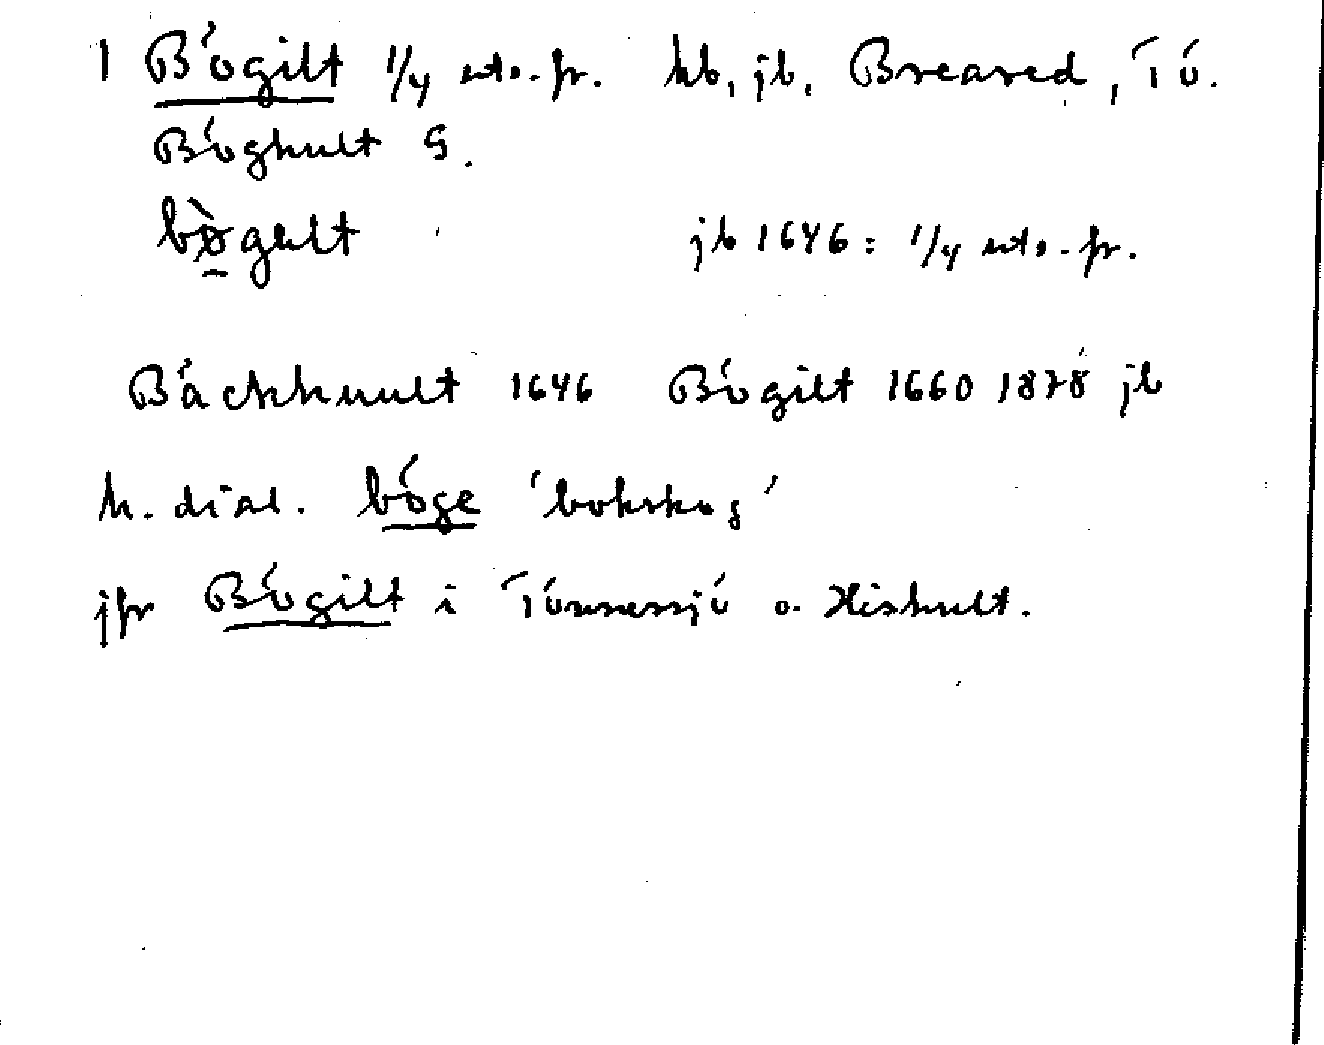 1 Bögilt 1/4 uts.-fr. kb, jb, Breared, Tö.
Böghult G.
bø̀gelt jb 1646: 1/4 uts.-fr.
Bäckhuult 1646 Bögilt 1660 1878 jb
h. dial. böge 'bokskog'
jfr Bögilt i Tönnersjö o. Hishult.